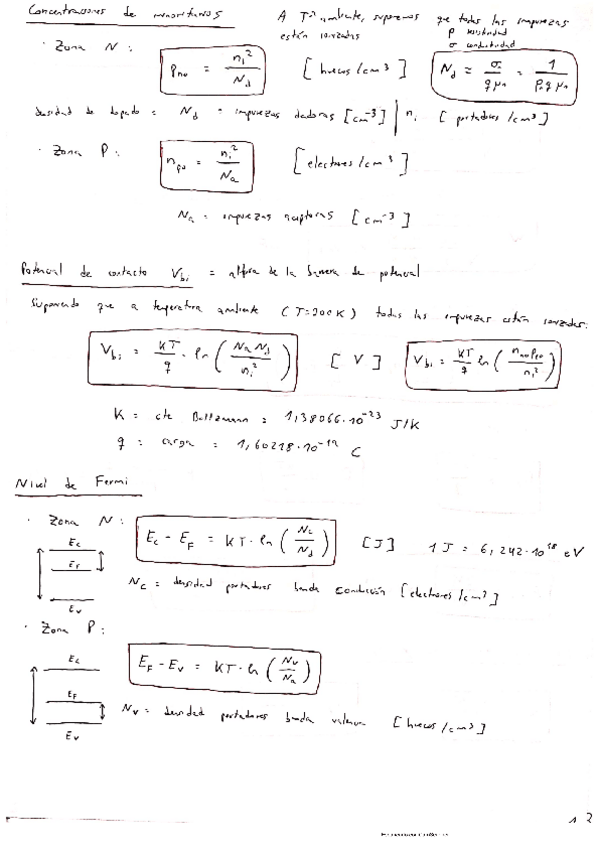 Concentraciones de minoritarios
A Tª ambiente, suponemos que todas las impurezas
están ionizadas
ρ resistividad
σ conductividad
· Zona N: p_no = n_i² / N_d [huecos/cm³] N_d ≈ σ / (q μ_n) = 1 / (ρ · q μ_n)
densidad de dopado = N_d = impurezas dadoras [cm⁻³] | n_i [portadores/cm³]
· Zona P: n_po = n_i² / N_a [electrones/cm³]
N_a = impurezas aceptoras [cm⁻³]
Potencial de contacto V_bi = altura de la barrera de potencial
Suponiendo que a temperatura ambiente (T=300K) todas las impurezas están ionizadas:
V_bi = KT/q · ln (N_a N_d / n_i²) [V] V_bi = KT/q ln (n_no p_po / n_i²)
K = cte Boltzmann = 1,38066·10⁻²³ J/K
q = carga = 1,60218·10⁻¹⁹ C
Nivel de Fermi
· Zona N: E_c - E_F = KT · ln (N_c / N_d) [J] 1 J = 6,242·10¹⁸ eV
E_c
E_F
E_v
N_c = densidad portadores banda conducción [electrones/cm³]
· Zona P:
E_F - E_v = KT · ln (N_v / N_a)
E_c
E_F
E_v
N_v = densidad portadores banda valencia [huecos/cm³]